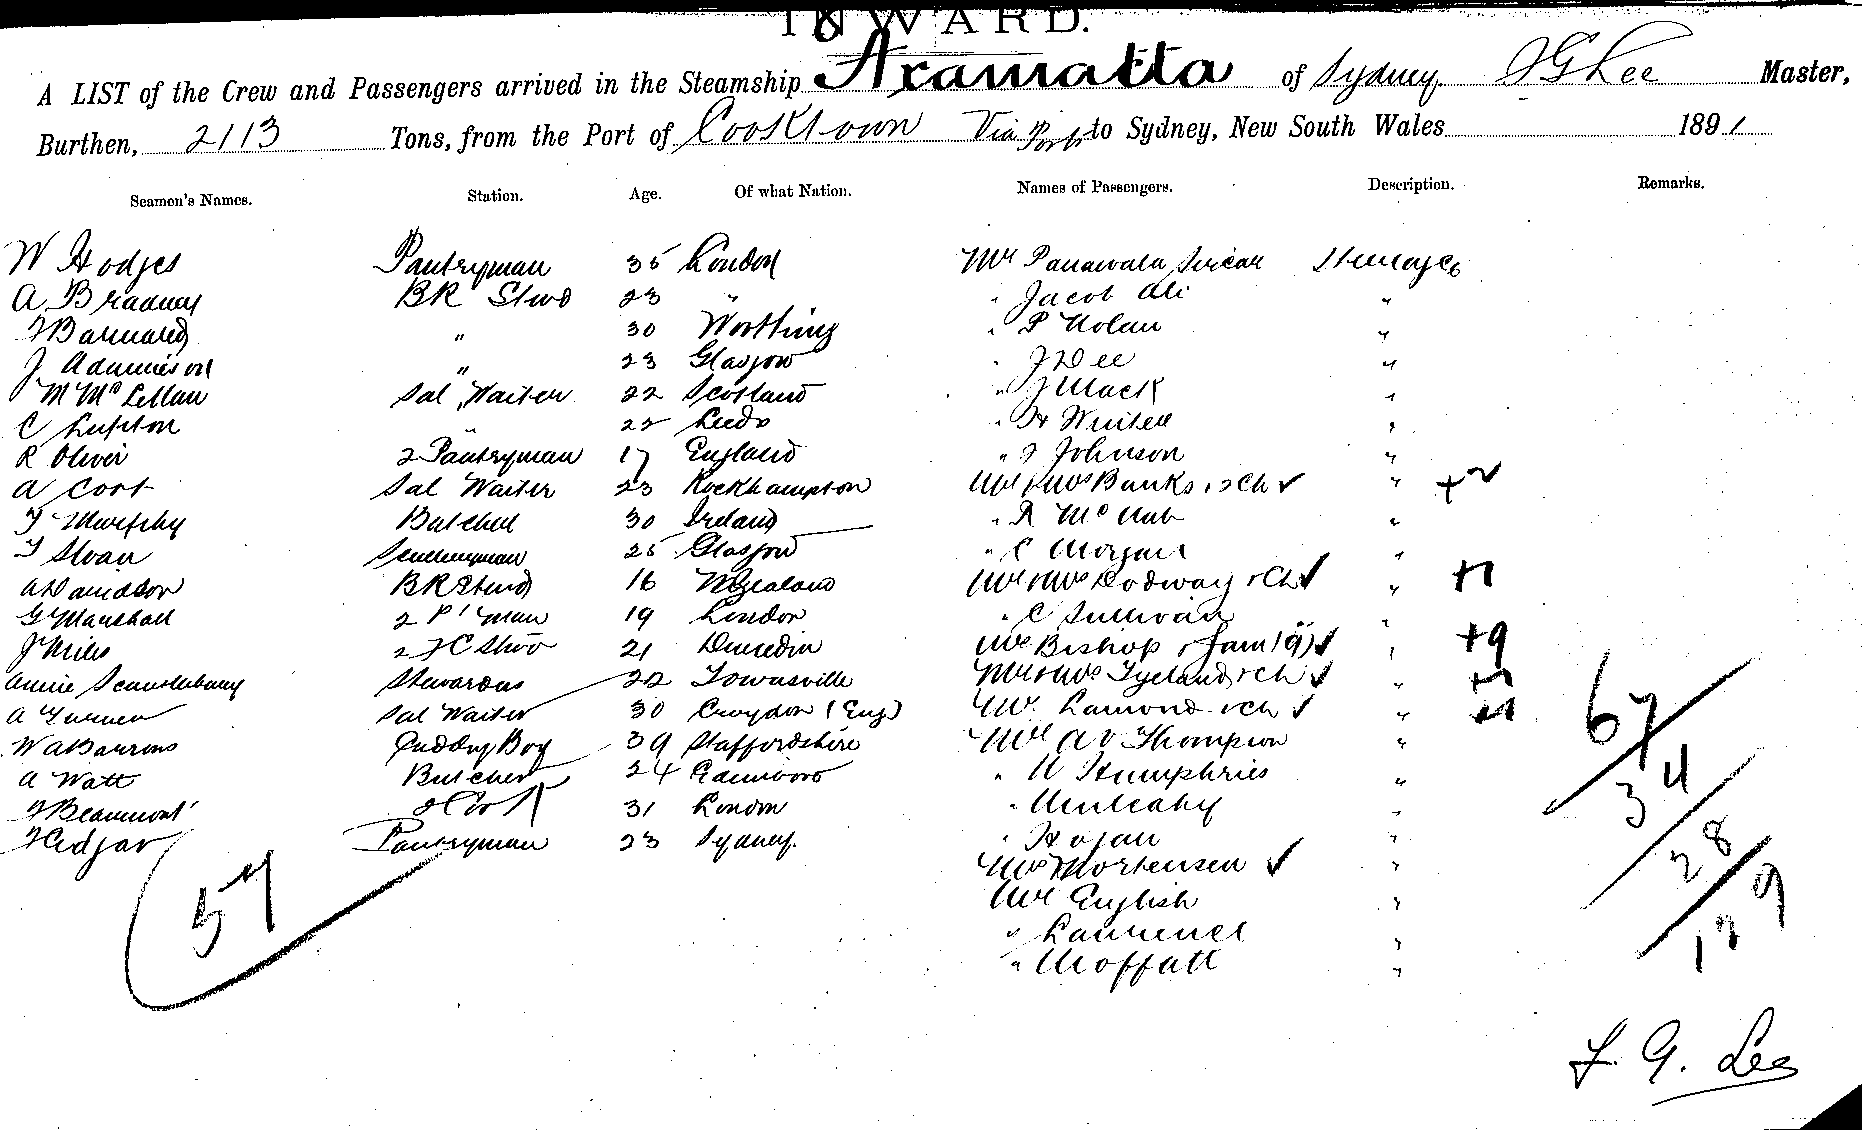 INWARD.
A LIST of the Crew and Passengers arrived in the Steamship Aramatta of Sydney. J G Lee Master,
Burthen, 2113 Tons, from the Port of Cooktown Via Ports to Sydney, New South Wales 1891
Seamen's Names. Station. Age. Of what Nation. Names of Passengers. Description. Remarks.
W Hodges Pantryman 35 London Mr Steerage
A Bradney BR Stwd 23 " " Jacob Ali "
Barnard " 30 Worthing " P Nolan "
J Adamieson " 23 Glasgow " J Dee "
M McLellan Sal Waiter 22 Scotland " J Mack "
C Lupton " 22 Leeds " H "
R Oliver 2 Pantryman 17 England " J Johnson "
A Cort Sal Waiter 23 Rockhampton Mr & Mrs Banks & 2 Ch ✓ " +2
T Murphy Butcher 30 Ireland " R McNab "
T Sloan 25 Glasgow " C Morgan "
A Davidson BR Stwd 16 N Zealand Mr & Mrs Dodway & Ch ✓ " +1
G Marshall 2 P'man 19 London " C Sullivan "
J Miles 2 Stwd 21 Dunedin Mr Bishop & Fam (9) ✓ " +9
Annie Stewardess 22 Townsville Mr & Mrs & Ch ✓ "
A Turner Sal Waiter 30 Croydon (Eng) Lamond & Ch ✓ " +1
W A Barrons Cuddy Boy 39 Staffordshire Mr A V Thompson " 67
A Watt Butcher 24 Edinboro " W Humphries " 34
Beaumont 2 Cook 31 London " Mulcahy "
Edgar Pantryman 23 Sydney. " Hogan " 28
57 Mrs Mortensen ✓ "
Mr English " 129
" Laurence "
" Moffatt "
J. G. Lee